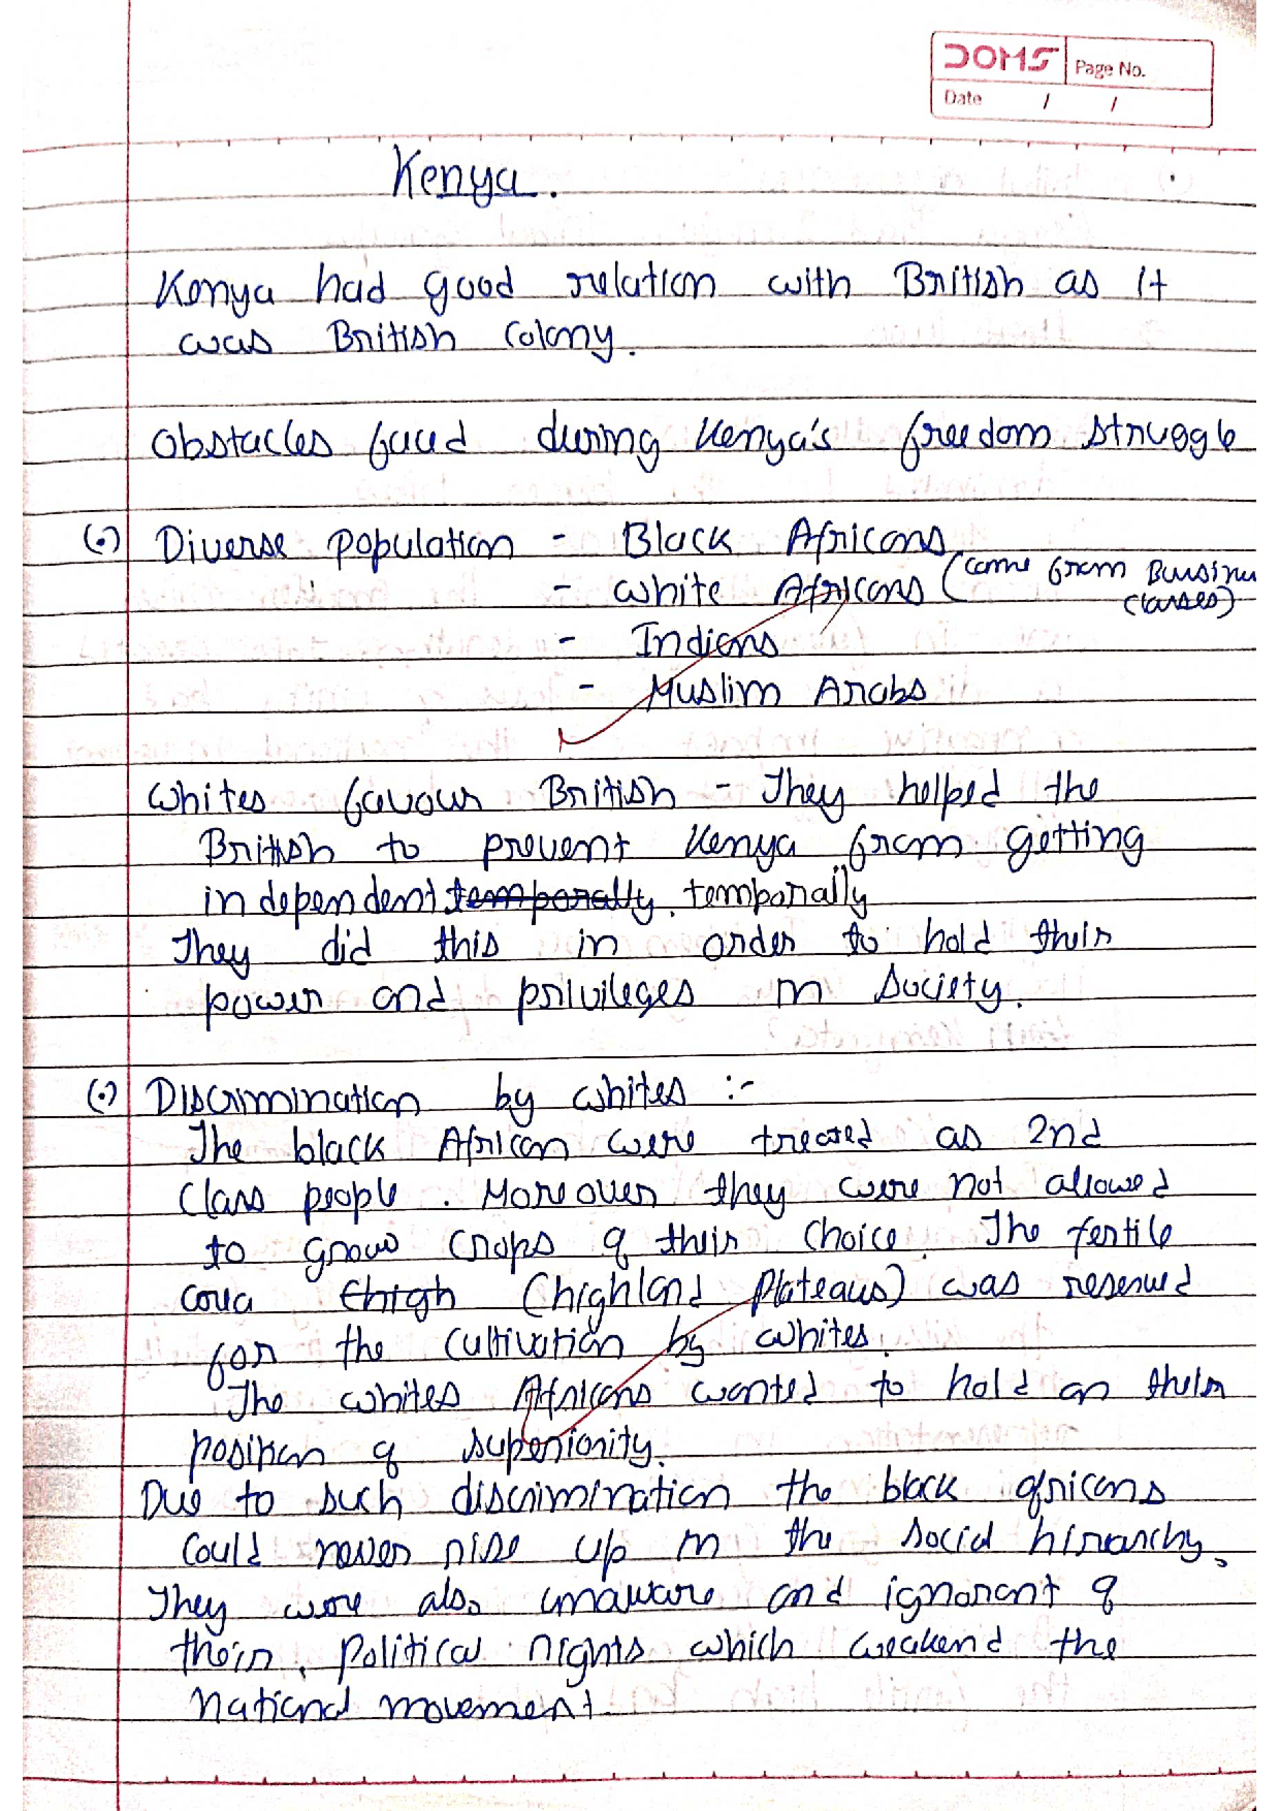 DOMS
Page No.
Date / /
Kenya.
Kenya had good relation with British as it
was British colony.
Obstacles faced during Kenya's freedom struggle
(•) Diverse population - Black Africans
- White Africans (came from Bussines
classes)
- Indians
- Muslim Arabs
Whites favour British - They helped the
British to prevent Kenya from getting
independent temporally. temporally
They did this in order to hold their
power and privileges in society.
(•) Discrimination by whites :-
The black African were treated as 2nd
class people. Moreover they were not allowed
to grow crops of their choice. The fertile
(highland plateaus) was reserved
for the cultivation by whites.
The whites Africans wanted to hold on their
position of superiority.
Due to such discrimination the black africans
could never rise up in the social hirarchy.
They were also unaware and ignorant of
their political rights which weakend the
national movement